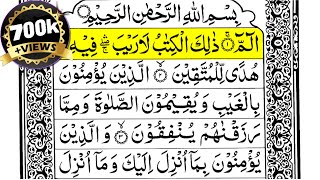 700k
+VIEWS
بِسْمِ اللهِ الرَّحْمٰنِ الرَّحِيْمِ
الٓمّٓ ۚ ذٰلِكَ الْكِتٰبُ لَا رَيْبَ ۛ فِيْهِ ۛ
هُدًى لِّلْمُتَّقِيْنَ ۙ الَّذِيْنَ يُؤْمِنُوْنَ
بِالْغَيْبِ وَيُقِيْمُوْنَ الصَّلٰوةَ وَمِمَّا
رَزَقْنٰهُمْ يُنْفِقُوْنَ ۙ وَالَّذِيْنَ
يُؤْمِنُوْنَ بِمَآ اُنْزِلَ اِلَيْكَ وَمَآ اُنْزِلَ